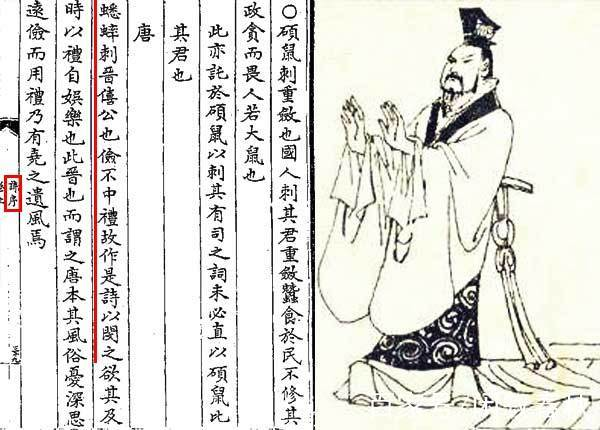 ○碩鼠刺重斂也國人刺其君重斂蠶食於民不修其
政貪而畏人若大鼠也
此亦託於碩鼠以刺其有司之詞未必直以碩鼠比
其君也
唐
蟋蟀刺晉僖公也儉不中禮故作是詩以閔之欲其及
時以禮自娛樂也此晉也而謂之唐本其風俗憂深思
遠儉而用禮乃有堯之遺風焉
詩序